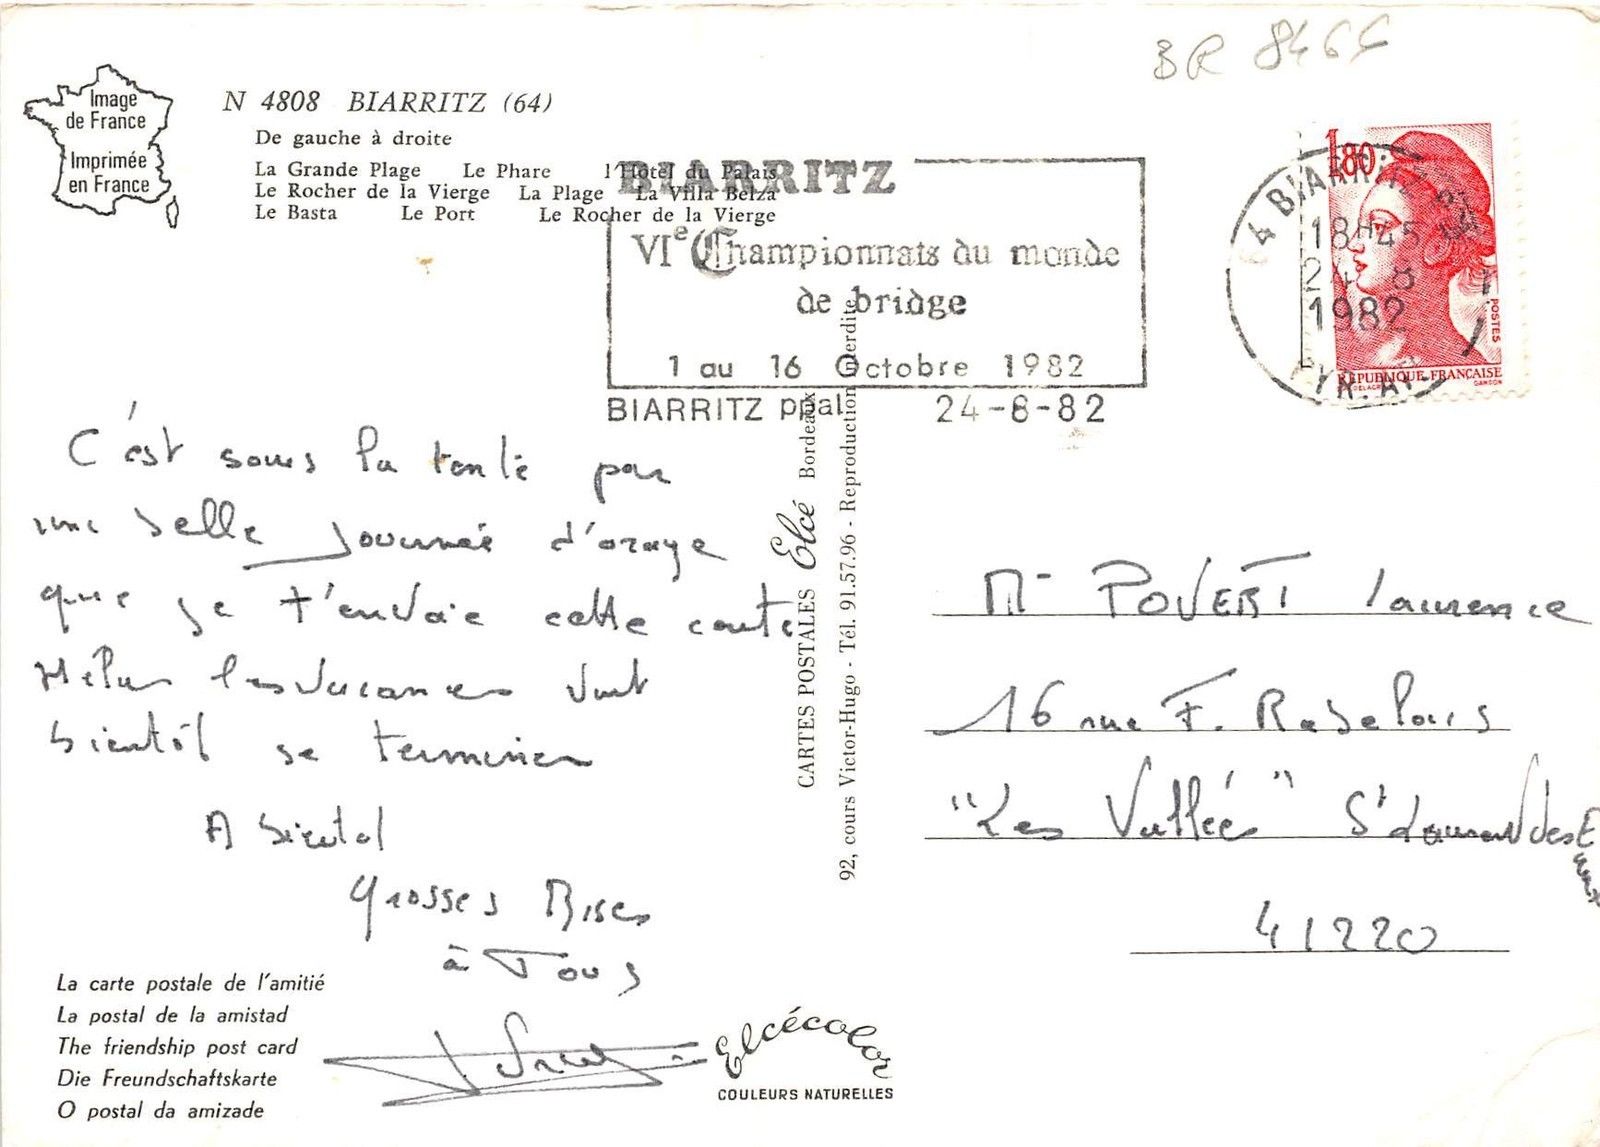 BR 8464
Image
de France
Imprimée
en France
N 4808 BIARRITZ (64)
De gauche à droite
La Grande Plage Le Phare l'Hôtel du Palais
Le Rocher de la Vierge La Plage La Villa Belza
Le Basta Le Port Le Rocher de la Vierge
BIARRITZ
VIe Championnats du monde
de bridge
1 au 16 Octobre 1982
BIARRITZ ppal 24-8-82
64 BIARRITZ
18H45
24 8
1982
PYR. AT.
1,80
POSTES
REPUBLIQUE FRANÇAISE
C'est sous la tente par
une belle journée d'orage
que je t'envoie cette carte
Hélas les vacances vont
bientôt se terminer
A bientôt
Grosses Bises
à Tous
CARTES POSTALES Elcé Bordeaux
92, cours Victor-Hugo - Tél. 91.57.96 - Reproduction interdite
Mr POVERT Laurence
16 rue F. Rabelais
"Les Vallées" St Laurent des E
41220
La carte postale de l'amitié
La postal de la amistad
The friendship post card
Die Freundschaftskarte
O postal da amizade
Elcécolor
COULEURS NATURELLES